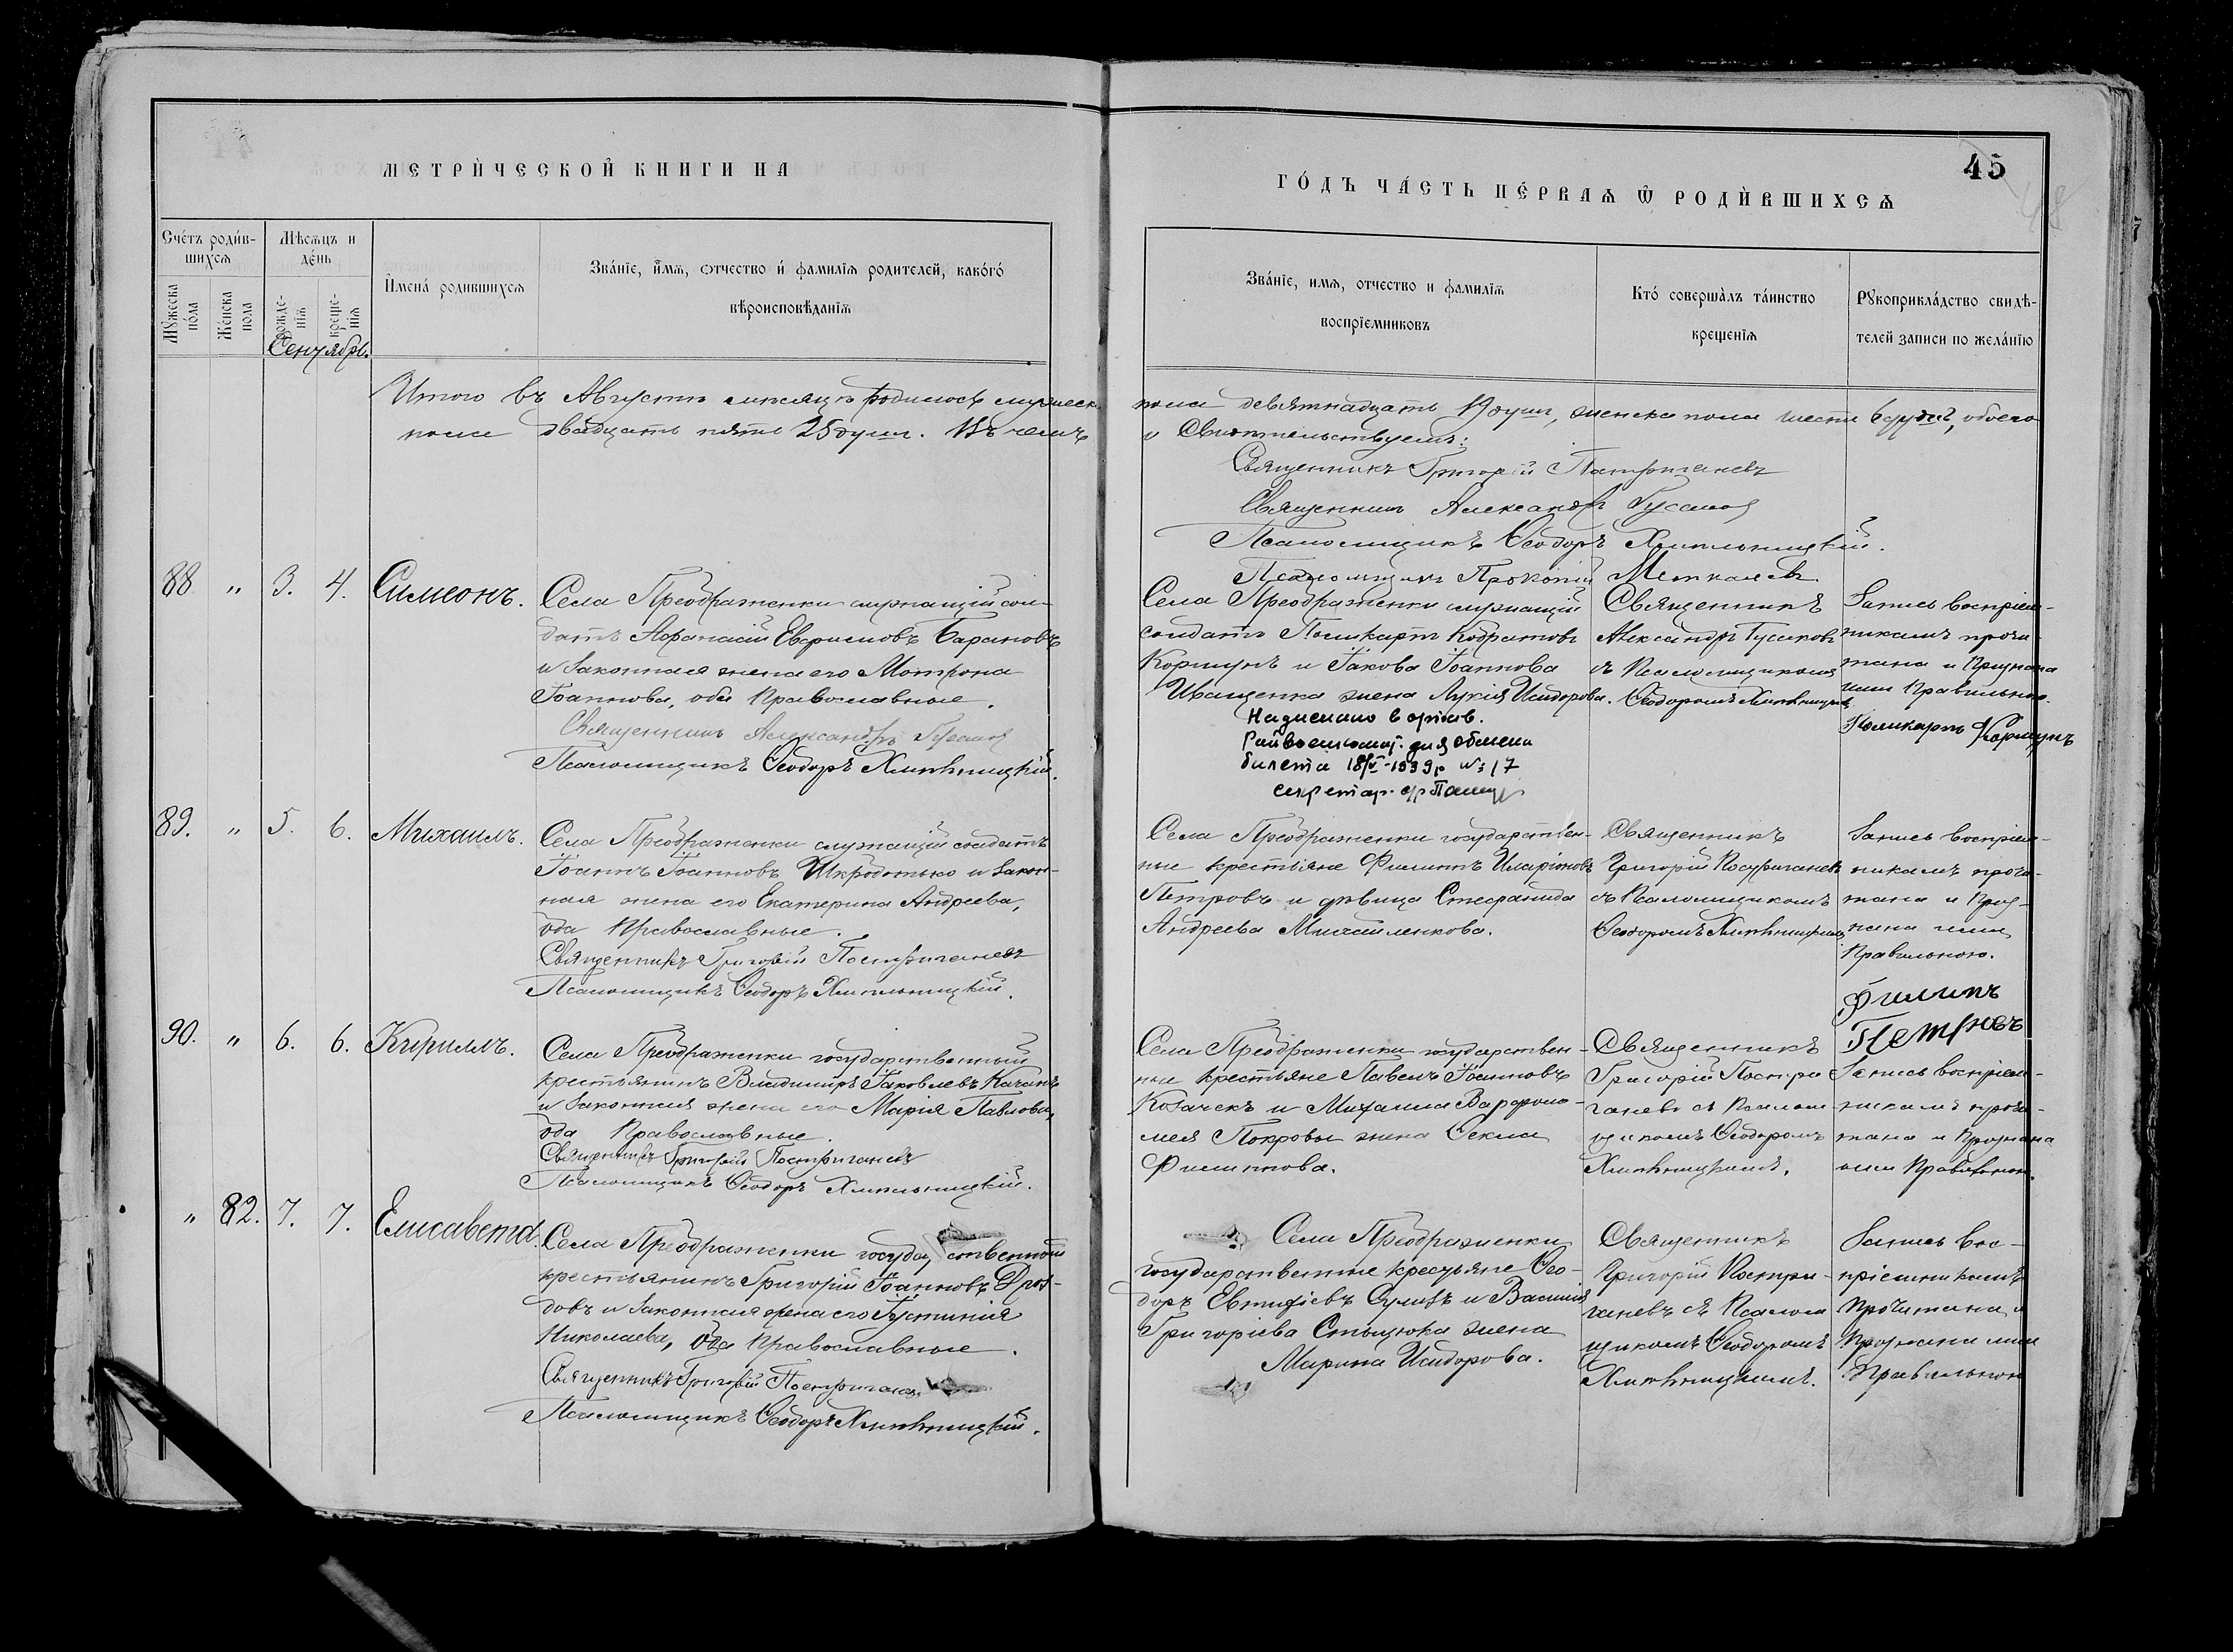 МЕТРИ́ЧЕСКОЙ КНИГИ НА
ГО́ДЪ ЧА́СТЬ ПЕ́РВАѦ Ѡ РОДИ́ВШИХСѦ
45
Сче́тъ роди́в-
шихсѧ
Мѣсѧцъ и
де́нь
Мꙋжеска
по́ла
Же́нска
пола
рожде-
нїѧ
креще-
нїѧ
Сентябрь
Имена́ родившихсѧ
Зва́нїе, и́мѧ, ѻтчество и́ фамилїѧ родителей, како́гѡ
вѣроисповѣданїѧ
Зва́нїе, имѧ, отчество и фамилїѧ
воспрїемниковъ
Кто́ соверша̀лъ та́инство
крещенїѧ
Рꙋкоприкла́дство свидѣ-
телей записи по жела́нїю
Итого въ Августѣ мѣсяцѣ родилось мужеска
пола девятнадцать 19 душъ, женска пола шесть 6 душъ, обоего
пола двадцать пять 25 душъ. Въ чемъ
и свидѣтельствуемъ:
Священникъ Григорій Пострыганевъ
Священникъ Александръ Гусаковъ
Псаломщикъ Ѳеодоръ Хмѣльницкій.
Псаломщикъ Прокопій
88 " 3. 4. Симеонъ.
Села Преображенки служащій сол-
датъ Афанасій Евфимовъ Барановъ
и законная жена его Мотрона
Іоаннова, оба православные.
Священникъ Александръ Гусаковъ
Псаломщикъ Ѳеодоръ Хмѣльницкій.
Села Преображенки служащій
солдатъ Поликарпъ Кодратовъ
Коршунъ и Іакова Іоаннова
Иващенка жена Лукія Исидорова.
Священникъ
Александръ Гусаковъ
съ Псаломщикомъ
Ѳеодоромъ Хмѣльницкимъ
Запись воспріем-
никамъ прочи-
тана и признана
ими правильною.
Поликарпъ Коршунъ
билета 18/V-1939г № 17
секретар. с/р
89. " 5. 6. Михаилъ.
Села Преображенки служащій солдатъ
Іоаннъ Іоанновъ Шкроботько и закон-
ная жена его Екатерина Андреева,
оба православные.
Священникъ Григорій Пострыганевъ
Псаломщикъ Ѳеодоръ Хмѣльницкій.
Села Преображенки государствен-
ные крестьяне Филиппъ Иларіоновъ
Петровъ и дѣвица Стефанида
Андреева Михайленкова.
Священникъ
Григорій Пострыганевъ
съ Псаломщикомъ
Ѳеодоромъ Хмѣльницкимъ
Запись воспріем-
никамъ прочи-
тана и приз-
нана ими
правильною.
Филипъ
Петровъ
90. " 6. 6. Кириллъ.
Села Преображенки государственный
крестьянинъ Владимиръ Іаковлевъ Качанъ
и законная жена его Марія Павлова,
оба православные.
Священникъ Григорій Пострыганевъ
Псаломщикъ Ѳеодоръ Хмѣльницкій.
Села Преображенки государствен-
ные крестьяне Павелъ Іоанновъ
Козачекъ и Михаила Варфоло-
мея Покровы жена Ѳекла
Филиппова.
Священникъ
Григорій Постры
ганевъ съ Псалом
щикомъ Ѳеодоромъ
Хмѣльницкимъ.
Запись воспріем-
никамъ прочи-
тана и признана
ими правильною.
" 82. 7. 7. Елисавета.
Села Преображенки государственный
крестьянинъ Григорій Іоанновъ Дроз-
довъ и законная жена его Іустинія
Николаева, оба православные.
Священникъ Григорій Пострыганевъ
Псаломщикъ Ѳеодоръ Хмѣльницкій.
Села Преображенки
государственные крестьяне Ѳео-
доръ Евтихіевъ Сулимъ и Василія
Григоріева Стецюка жена
Марина Исидорова.
Священникъ
Григорій Постры-
ганевъ съ Псалом
щикомъ Ѳеодоромъ
Хмѣльницкимъ.
Запись вос-
пріемникамъ
прочитана и
признана ими
правильною